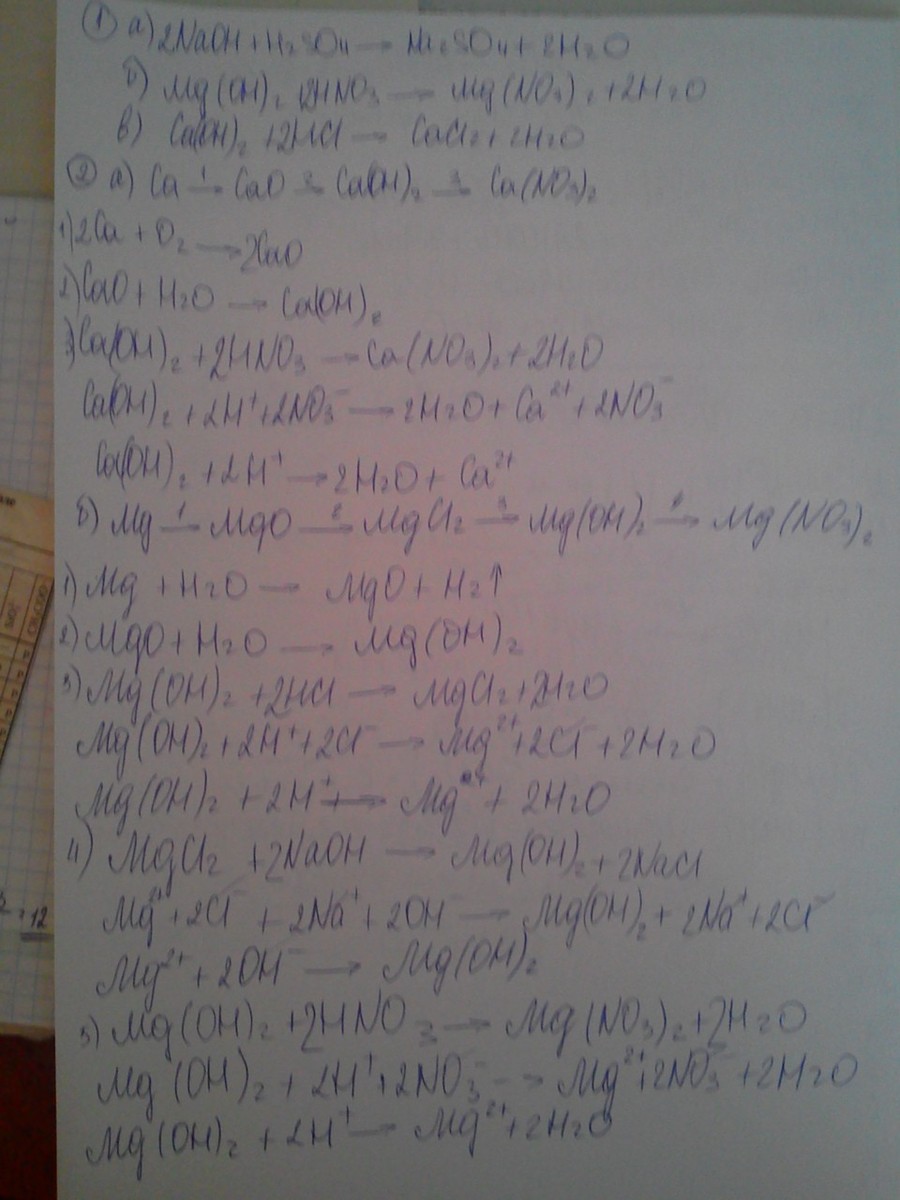 ① а) 2NaOH + H₂SO₄ → Na₂SO₄ + 2H₂O
б) Mg(OH)₂ + 2HNO₃ → Mg(NO₃)₂ + 2H₂O
в) Ca(OH)₂ + 2HCl → CaCl₂ + 2H₂O
② а) Ca →¹ CaO →² Ca(OH)₂ →³ Ca(NO₃)₂
1) 2Ca + O₂ → 2CaO
2) CaO + H₂O → Ca(OH)₂
3) Ca(OH)₂ + 2HNO₃ → Ca(NO₃)₂ + 2H₂O
Ca(OH)₂ + 2H⁺ + 2NO₃⁻ → 2H₂O + Ca²⁺ + 2NO₃⁻
Ca(OH)₂ + 2H⁺ → 2H₂O + Ca²⁺
б) Mg →¹ MgO →² MgCl₂ →³ Mg(OH)₂ →⁴ Mg(NO₃)₂
1) Mg + H₂O → MgO + H₂↑
2) MgO + H₂O → Mg(OH)₂
3) Mg(OH)₂ + 2HCl → MgCl₂ + 2H₂O
Mg(OH)₂ + 2H⁺ + 2Cl⁻ → Mg²⁺ + 2Cl⁻ + 2H₂O
Mg(OH)₂ + 2H⁺ → Mg²⁺ + 2H₂O
4) MgCl₂ + 2NaOH → Mg(OH)₂ + 2NaCl
Mg²⁺ + 2Cl⁻ + 2Na⁺ + 2OH⁻ → Mg(OH)₂ + 2Na⁺ + 2Cl⁻
Mg²⁺ + 2OH⁻ → Mg(OH)₂
5) Mg(OH)₂ + 2HNO₃ → Mg(NO₃)₂ + 2H₂O
Mg(OH)₂ + 2H⁺ + 2NO₃⁻ → Mg²⁺ + 2NO₃⁻ + 2H₂O
Mg(OH)₂ + 2H⁺ → Mg²⁺ + 2H₂O